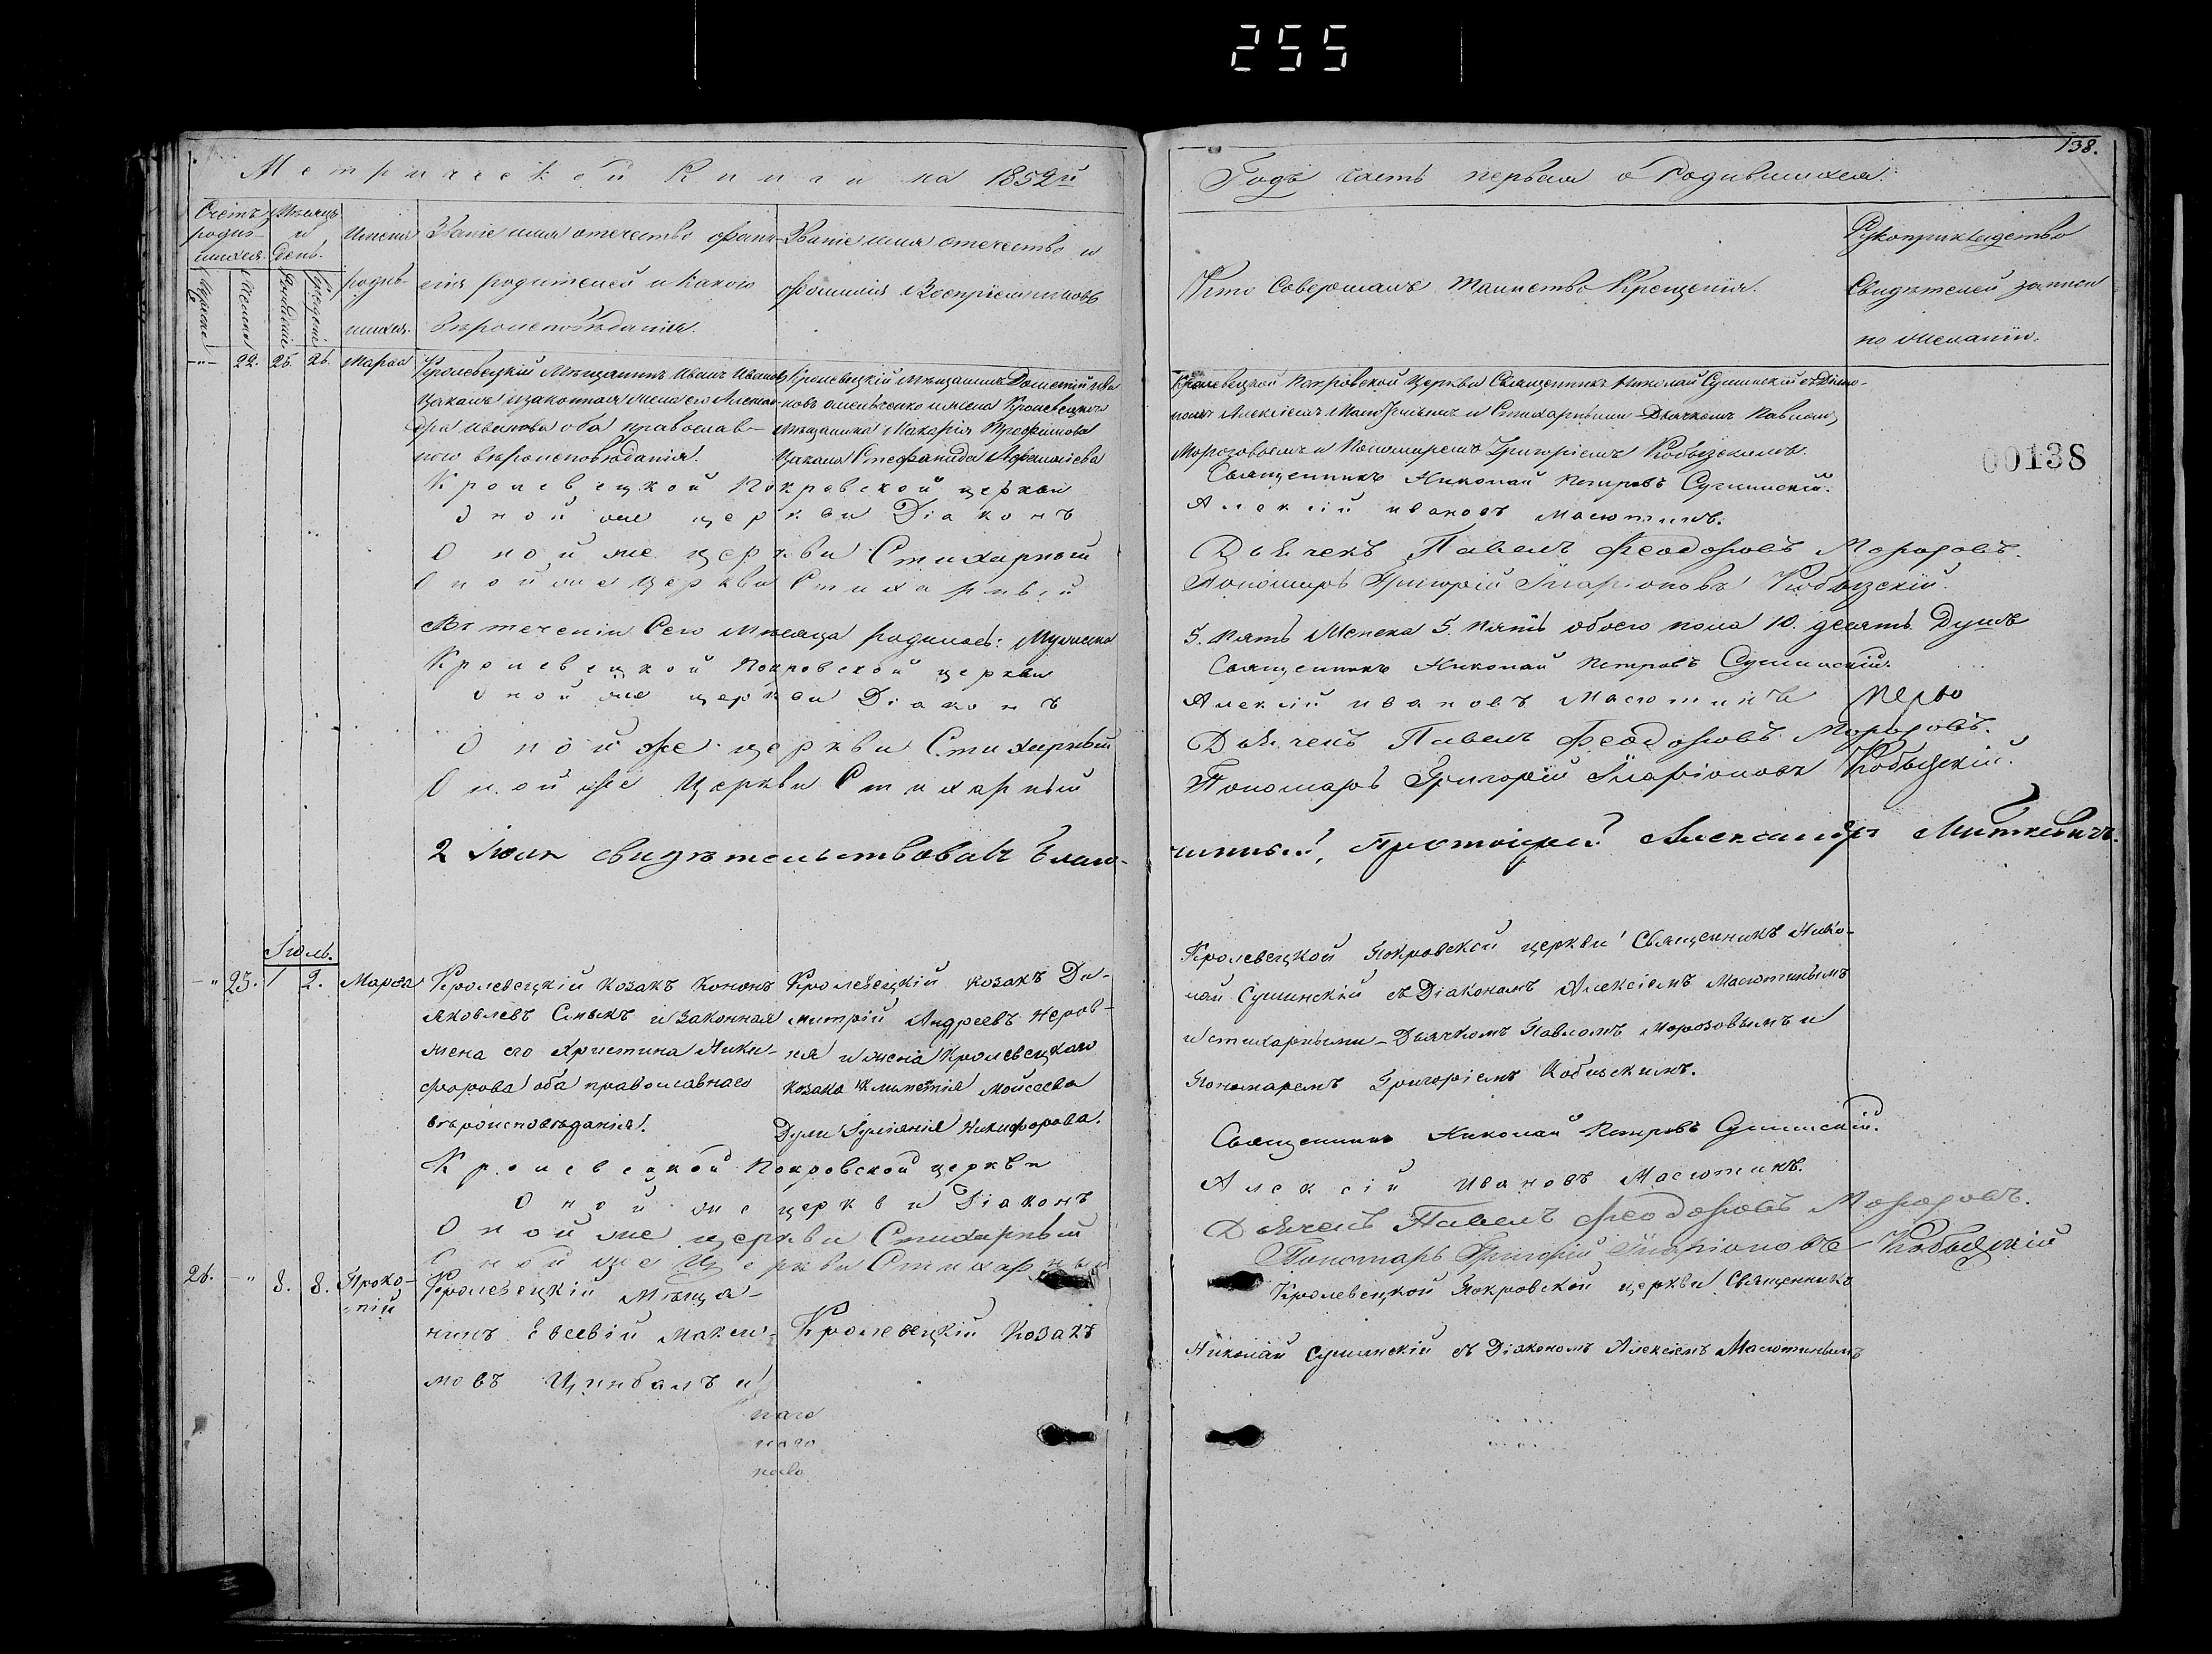 255
138.
Метрической Книги на 1852й
Годъ часть первая о Родившихся.
Счетъ родив-шихся.
Мѣсяцъ и День.
Имена родив-шихся.
Званіе имя отечество фами-
лія родителей и какого
вѣроисповѣданія.
Званіе имя отечество и
фамилія Воспріемниковъ
Кто Совершалъ таинство Крещенія.
Рукоприкладство
Свидѣтелей записи
по желанію.
Мужеска
Женска
Рожденія
Крещенія
22. 25. 26. Марѳа
Кролевецкій Мѣщанинъ Иванъ Ивановъ
Цакалъ и законная жена его Алексан-
дра Иванова оба православ-
наго вѣроисповѣданія.
Кролевецкій мѣщанинъ Дометій Ива
новъ Омельченко и жена Кролевецкаго
мѣщанина Макарія Трофимова
Цакала Стефанида Афанасіева
Кролевецкой Покровской Церкви Священникъ Николай Сушинскій съ Діако-
номъ Алексіемъ Масютинымъ и Стихарными Дьячкомъ Павломъ
Морозовымъ и Пономаремъ Григоріемъ Кобызскимъ.
00138
Кролевецкой Покровской церкви Священникъ Николай Петровъ Сушинскій.
Оной же церкви Діаконъ Алексій Ивановъ Масютинъ.
Оной же церкви Стихарный Дьячекъ Павелъ Феодоровъ Морозовъ.
Оной же Церкви Стихарный Пономарь Григорій Иларіоновъ Кобызскій.
Въ теченіи Сего мѣсяца родилось: Мужеска 5. пять Женска 5. пять обоего пола 10. десять Душъ
Кролевецкой Покровской церкви Священникъ Николай Петровъ Сушинскій.
Оной же церкви Діаконъ Алексій Ивановъ Масютинъ
Оной же церкви Стихарный Дьячекъ Павелъ Феодоровъ Морозовъ.
Оной же Церкви Стихарный Пономарь Григорій Иларіоновъ Кобызскій.
2 Іюля свидѣтельствовалъ Благо-
чинный, Протоіерей Александръ Миткевичъ.
Іюль.
23. 1 2. Марѳа
Кролевецкій козакъ Кононъ
Яковлевъ Смыкъ и законная
жена его Христина Ники-
форова оба православнаго
вѣроисповѣданія.
Кролевецкій козакъ Ди-
митрій Андреевъ Неров-
ня и жена Кролевецкаго
козака Климентія Мойсеева
Дули Іуліанія Никифорова.
Кролевецкой Покровской церкви Священникъ Нико-
лай Сушинскій съ Діакономъ Алексіемъ Масютинымъ
и стихарными Дьячкомъ Павломъ Морозовымъ и
Пономаремъ Григоріемъ Кобызскимъ.
Кролевецкой Покровской церкви Священникъ Николай Петровъ Сушинскій.
Оной же церкви Діаконъ Алексій Ивановъ Масютинъ.
Оной же церкви Стихарный Дьячекъ Павелъ Феодоровъ Морозовъ.
Оной же Церкви Стихарный Пономарь Григорій Иларіоновъ Кобызскій
26. 8. 8. Проко-
пій
Кролевецкій Мѣща-
нинъ Евсевій Макси-
мовъ Цинбалъ и
Кролевецкій Козакъ
Кролевецкой Покровской церкви Священникъ
Николай Сушинскій съ Діакономъ Алексіемъ Масютинымъ